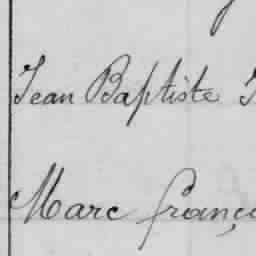 Jean Baptiste
Marc franço